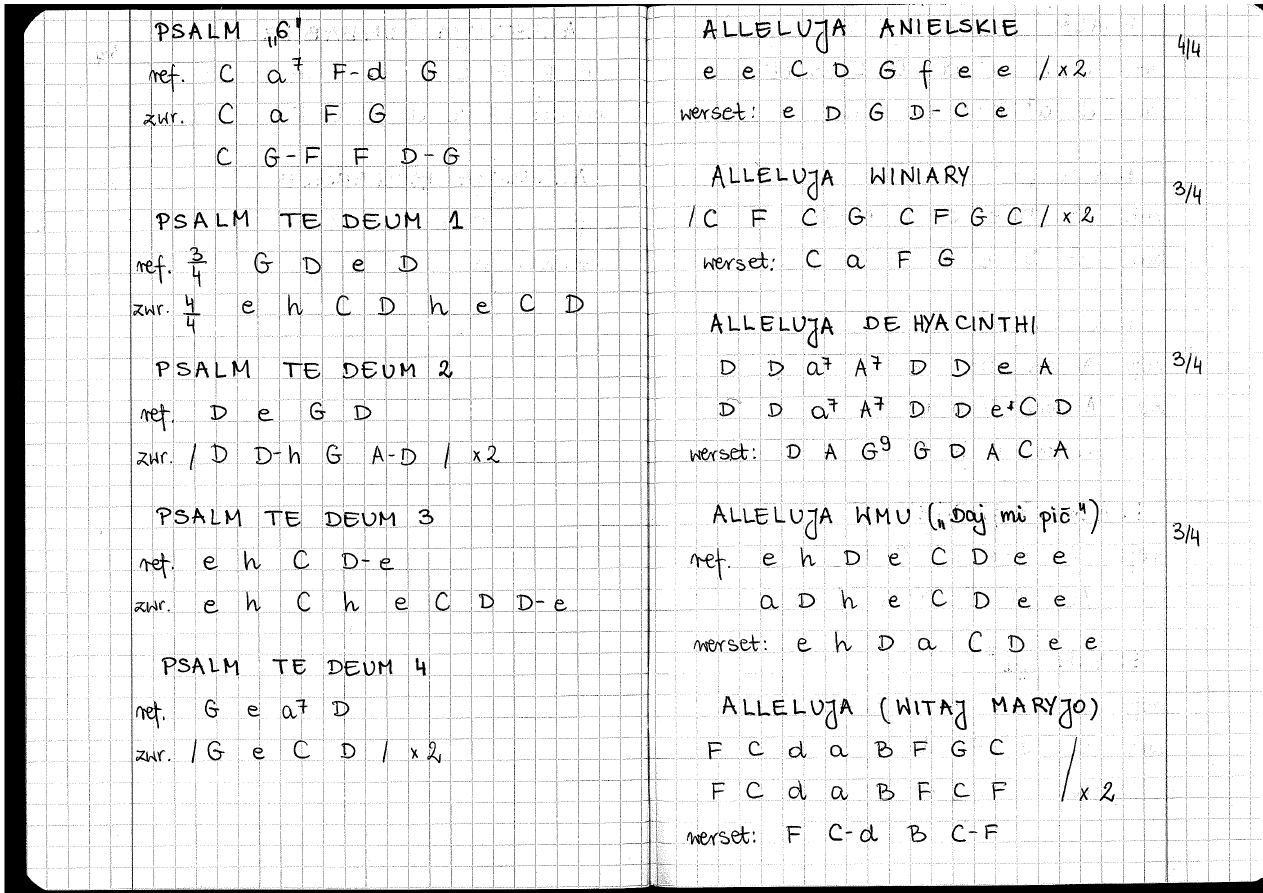 PSALM „6"
ref. C a7 F-d G
zwr. C a F G
C G-F F D-G
PSALM TE DEUM 1
ref. 3/4 G D e D
zwr. 4/4 e h C D h e C D
PSALM TE DEUM 2
ref. D e G D
zwr. / D D-h G A-D / x2
PSALM TE DEUM 3
ref. e h C D-e
zwr. e h C h e C D D-e
PSALM TE DEUM 4
ref. G e a7 D
zwr. / G e C D / x2
ALLELUJA ANIELSKIE 4/4
e e C D G f e e / x2
werset: e D G D-C e
ALLELUJA WINIARY 3/4
/ C F C G C F G C / x2
werset: C a F G
ALLELUJA DE HYACINTHI
D D a7 A7 D D e A 3/4
D D a7 A7 D D e+C D
werset: D A G9 G D A C A
ALLELUJA WMU („Daj mi pić") 3/4
ref. e h D e C D e e
a D h e C D e e
werset: e h D a C D e e
ALLELUJA (WITAJ MARYJO)
F C d a B F G C
F C d a B F C F / x2
werset: F C-d B C-F